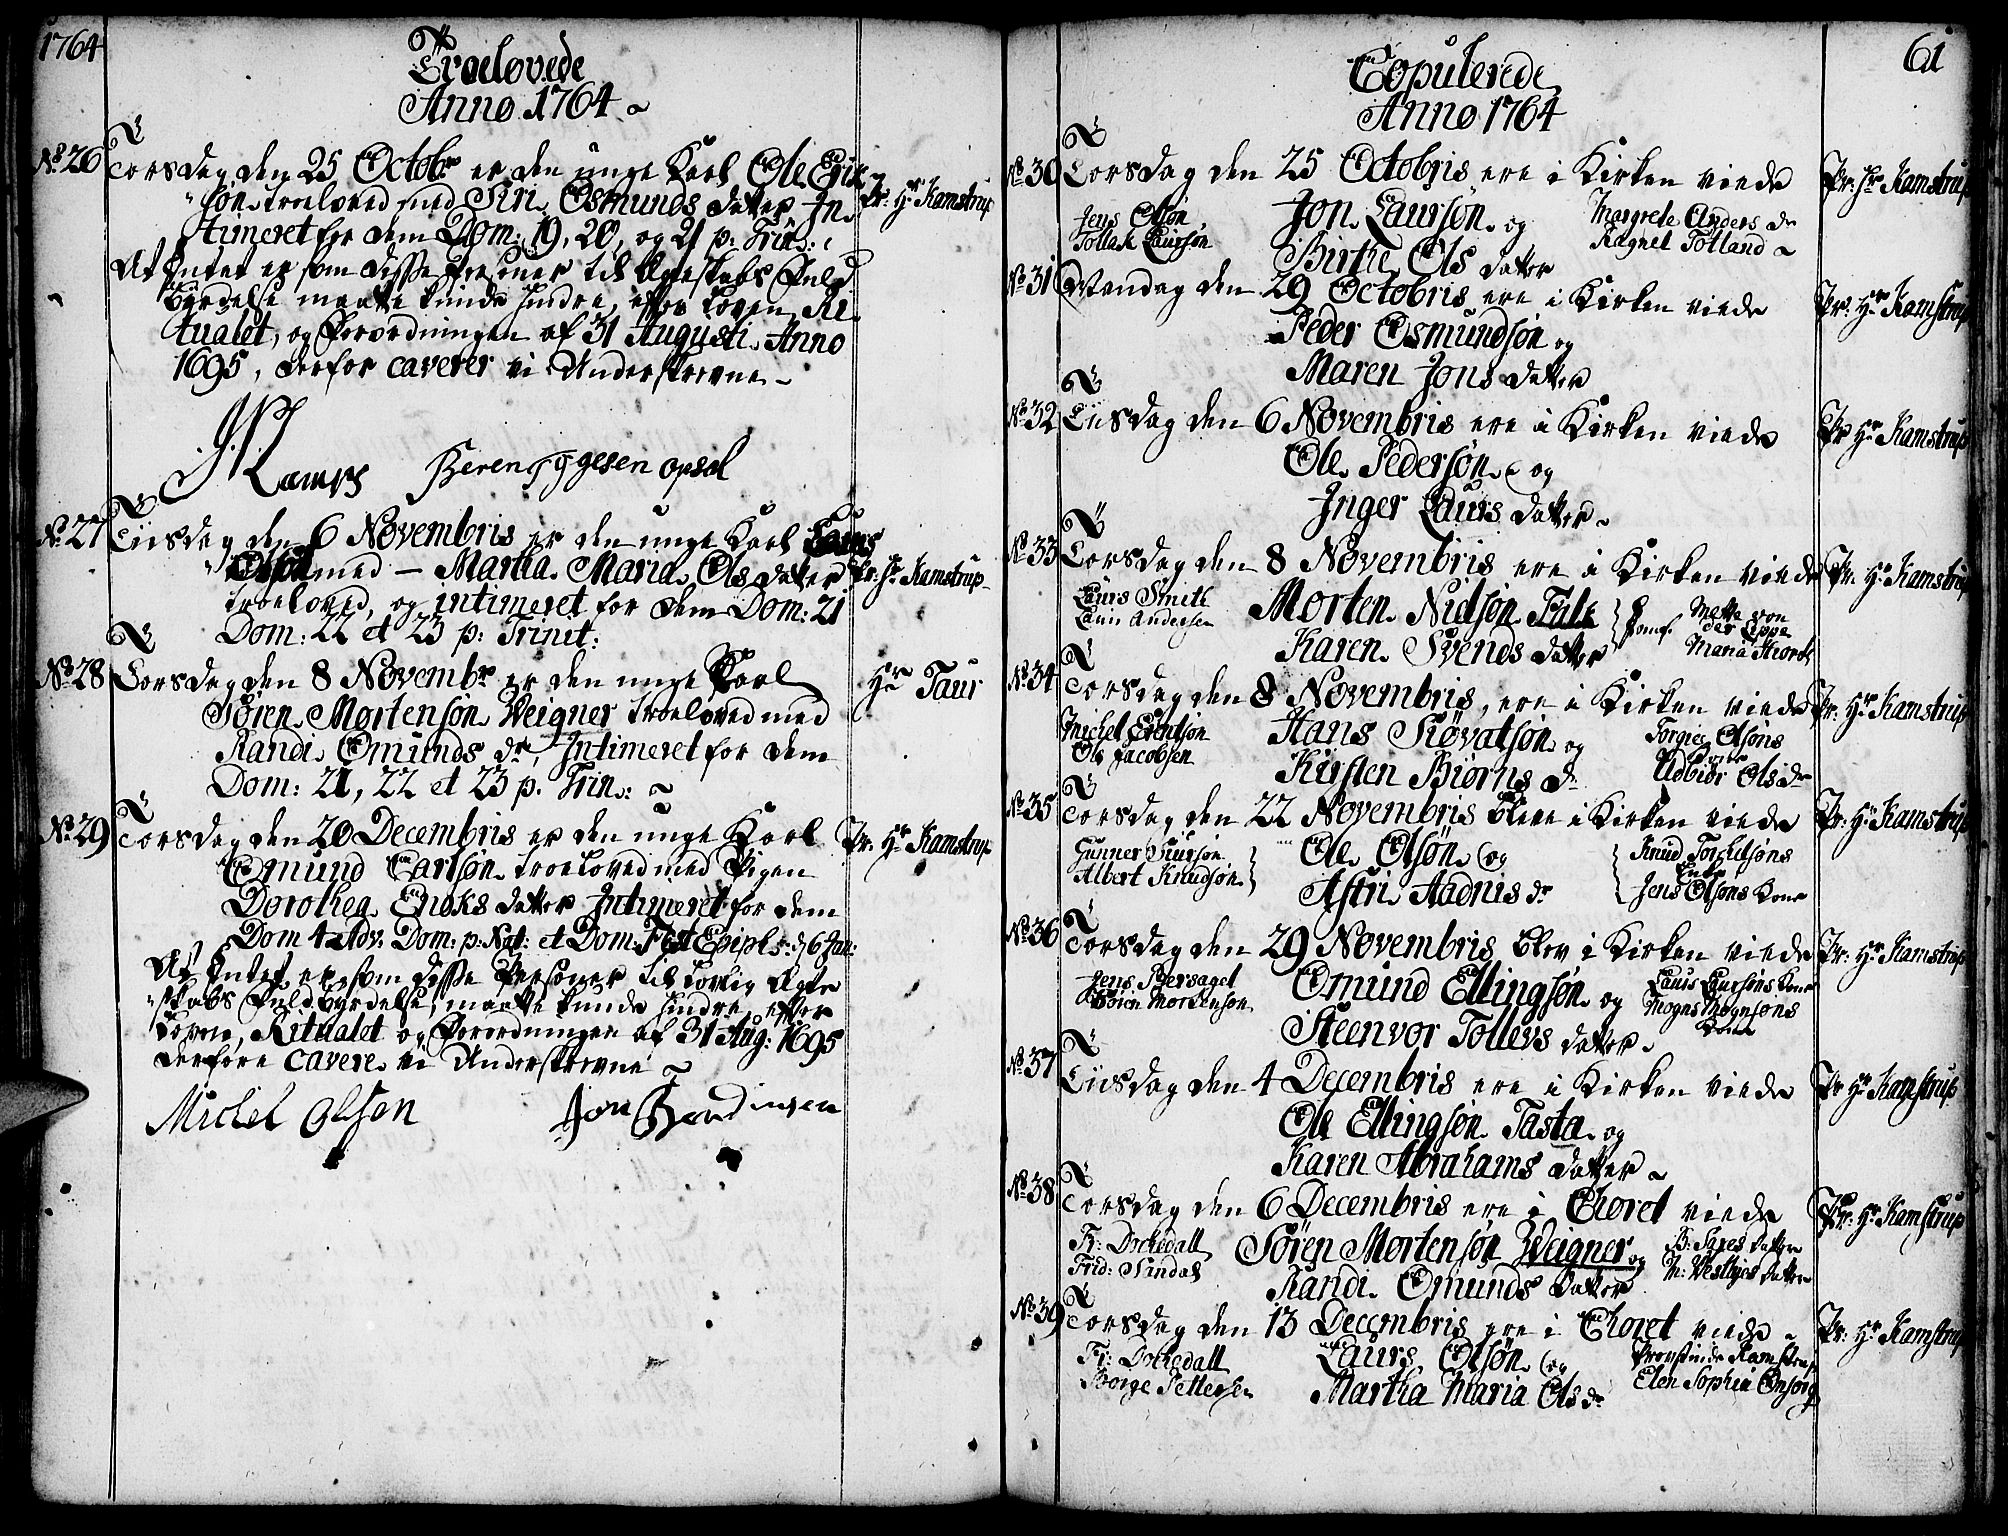 1764
Troelovede
Anno 1764
No. 26 Torsdag den 25 Octobr. er den unge Karl Ole Erik-
søn troeloved med Siri Osmunds datter In- Pr: Hr Kamstrup
timeret for dem Dom: 19, 20, og 21 p. Trin:
At Intet er som disse Personer til Ægteskabs Fuld-
byrdelse maatte kunde hindre, efter Loven, Ri-
tualet, og Forordningen af 31 Augusti Anno
1695, derfor caverer vi Underskrevne
Beren opsal
No. 27 Tiisdag den 6 Novembris er den unge Karl Laurs
Olsøn med — Martha Maria Ols datter Pr: Hr Kamstrup
troeloved, og intimeret for dem Dom: 21
Dom: 22 et 23 p: Trinit:
No. 28 Torsdag den 8 Novembr er den unge Karl Hr Taur
Søren Mortensøn Weigner troeloved med
Randi Omunds dr, Intimeret for dem
Dom: 21, 22 et 23 p. Trin:
No. 29 Torsdag den 20 Decembris er den unge Karl Pr: Hr Kamstrup
Omund Carlsøn troeloved med Pigen
Dorothea Enoks datter Intimeret for dem
Dom 4 Adv. Dom: p: Nat: et Dom: Fest Epiph: d. 6 Jan:
At Intet er som disse Personer til lovlig Ægte-
skabs Fuldbyrdelse, maatte kunde hindre efter
Loven, Ritualet og Forordningen af 31 Aug: 1695
derfore cavere vi Underskrevne
Michel Olson Jon
61
Copulerede
Anno 1764
No. 30 Torsdag den 25 Octobris ere i Kirken viede Pr: Hr Kamstrup
Jens Olsøn Jon Laursøn og Margrete Anders dr
Tollak Laursøn Birthe Ols datter Ragnel Tolland
No. 31 Mandag den 29 Octobris ere i Kirken viede Pr: Hr Kamstrup
Peder Osmundsøn og
Maren Jons datter
No. 32 Tiisdag den 6 Novembris ere i Kirken viede Pr Hr Kamstrup
Ole Pedersøn og
Inger Laurs datter
No. 33 Torsdag den 8 Novembris ere i Kirken viede Pr. Hr Kamstrup
Laurs Smith Morten Nielsøn Falk Jomf. Mette von der Lippe
Laur. Andersen Karen Svends datter Maria
No. 34 Torsdag den 8 Novembris, ere i Kirken viede Pr: Hr Kamstrup
Michel Erentsøn Hans Røvatsøn og Torgier Olsøns
Ole Jacobsen Kirsten Biørns dr Udbiør Ols dr
No. 35 Torsdag den 22 Novembris bleve i Kirken viede Pr: Hr Kamstrup
Gunner Siursøn Ole Olsøn og Knud Torkelsøns Enke
Albert Knudsøn Astri Aadnis dr Jens Olsøns Kone
No. 36 Torsdag den 29 Novembris blev i Kirken viede Pr: Hr Kamstrup
Jens Omund Ellingsøn og Laurs Laursøns Kone
Søren Mortensøn Steenvor Tollevs datter Mogns Mognsøns Kone
No. 37 Tiisdag den 4 Decembris ere i Kirken viede Pr Hr Kamstrup
Ole Ellingsøn Tasta og
Karen Abrahams datter
No. 38 Torsdag den 6 Decembris ere i Choret viede Pr: Hr Kamstrup
Fr: Dockedall Søren Mortensøn Weigner og B: Saxes datter
Frid: Sindal Randi Omunds datter M: Vestlyes datter
No. 39 Torsdag den 13 Decembris ere i Choret viede Pr: Hr Kamstrup
Fr: Dockedall Laurs Olsøn og Provstinde Kamstrup
Børge Pettersen Martha Maria Ols dr Elen Sophia Onsorg